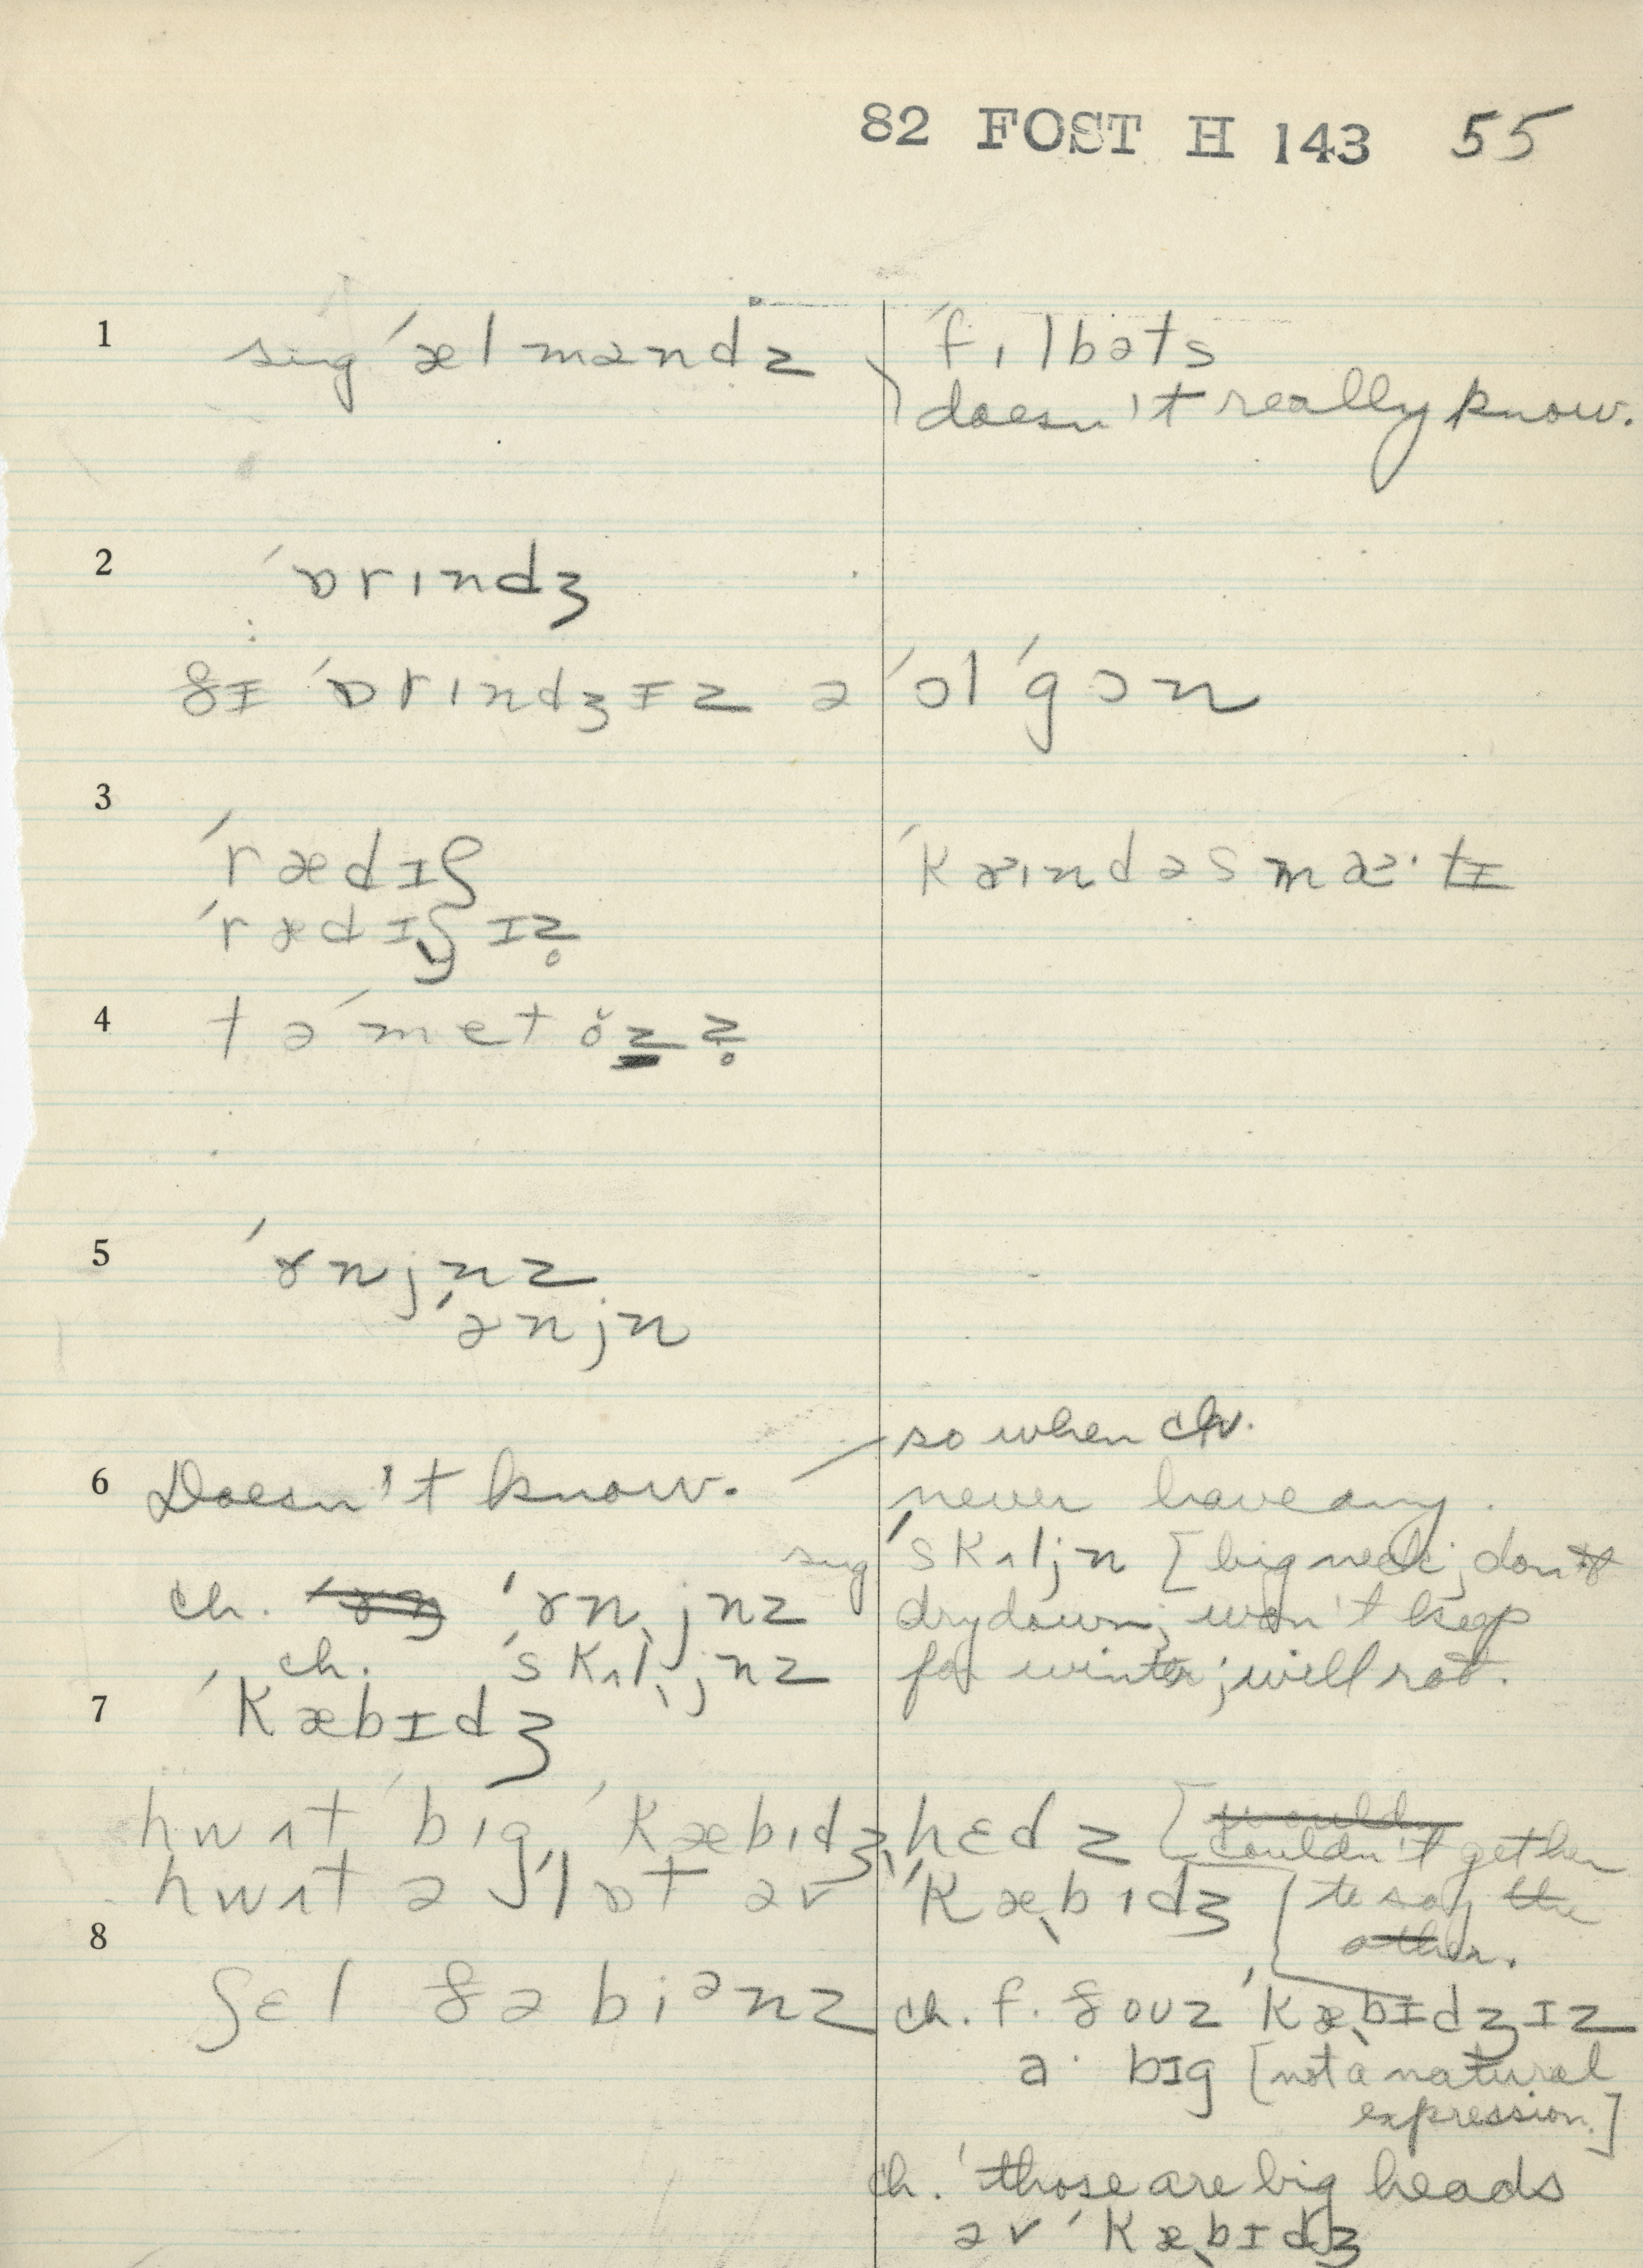 82 FOST H 143 55
1 sug ˈælməndz ˈfɪlbəts
doesn't really know.
2 ˈɒrɪndʒ
ðɪ ˈɒrɪndʒɪz ə ˈɔl ˈgɔn
3 ˈrædɪʃ
ˈrædɪʃɪz̥
4 təˈmetŏz z̥
5 ˈɤnjnz
ˈənjn
so when ch.
6 Doesn't know. never have any.
sug ˈskʌljn [big neck; don't
ch. ˈɤnjnz dry down; won't keep
ch. ˈskʌljnz for winter; will rot.
7 ˈkæbɪdʒ
hwʌt ˈbɪg ˈkæbɪdʒ hɛdz [couldn't get her
hwʌt ə ˈlɒt əv ˈkæbɪdʒ to say the
8 other.
ʃɛl ðə biᵊnz ch. f. ðouz ˈkæbɪdʒɪz
a· bɪg [not a natural
expression.]
ch. ˈthose are big heads
əv ˈkæbɪdʒ